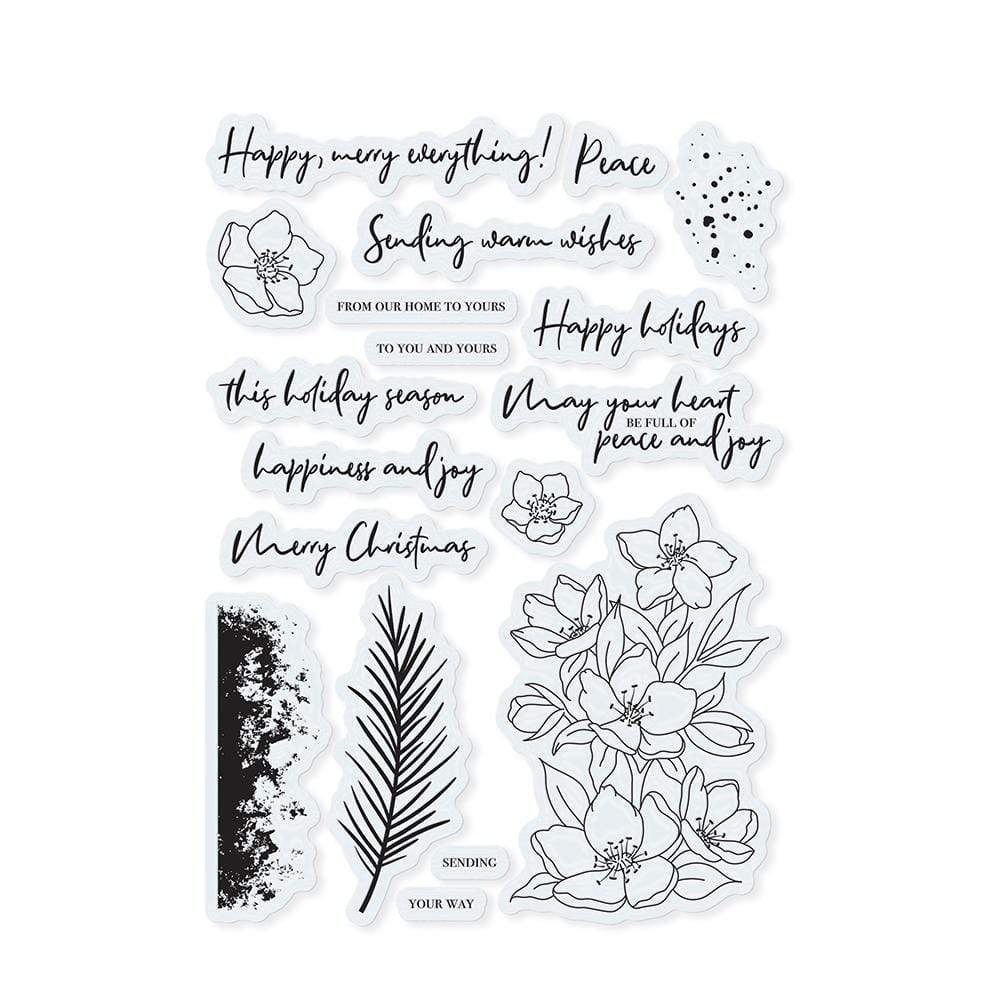 Happy, merry everything!
Peace
Sending warm wishes
FROM OUR HOME TO YOURS
Happy holidays
TO YOU AND YOURS
this holiday season
May your heart
BE FULL OF
peace and joy
happiness and joy
Merry Christmas
SENDING
YOUR WAY